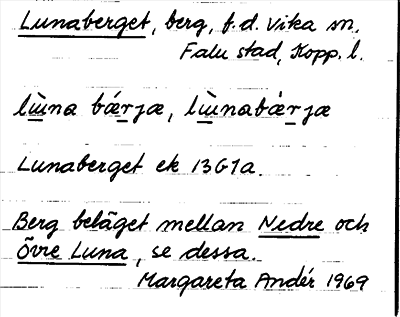 Lunaberget, berg, f.d. Vika sn.
Falu stad, Kopp. l.
lùna bǽrjæ, lùnabæ̀rjæ
Lunaberget ek 13G1a.
Berg beläget mellan Nedre och
Övre Luna, se dessa.
Margareta Andér 1969